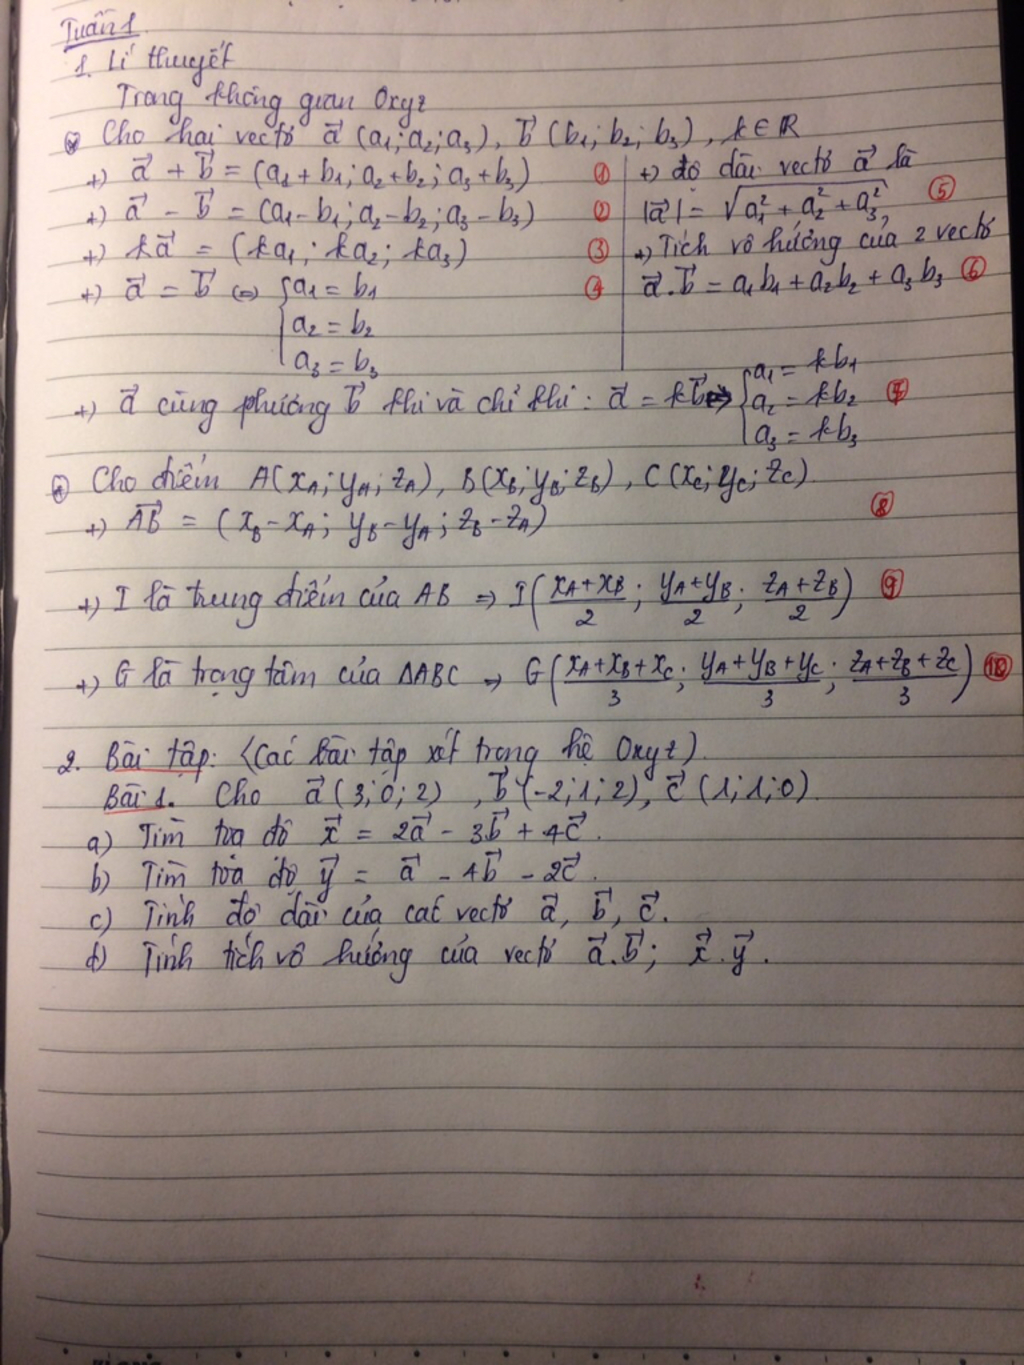 Tuần 1
1. Lí thuyết
Trong không gian Oxyz
Cho hai vectơ a⃗ (a₁; a₂; a₃), b⃗ (b₁; b₂; b₃), k ∈ ℝ
+) a⃗ + b⃗ = (a₁ + b₁; a₂ + b₂; a₃ + b₃) ①
+) a⃗ - b⃗ = (a₁ - b₁; a₂ - b₂; a₃ - b₃) ②
+) ka⃗ = (ka₁; ka₂; ka₃) ③
+) a⃗ = b⃗ ⇔ { a₁ = b₁ ④
a₂ = b₂
a₃ = b₃
+) độ dài vectơ a⃗ là
|a⃗| = √(a₁² + a₂² + a₃²) ⑤
+) Tích vô hướng của 2 vectơ
a⃗.b⃗ = a₁b₁ + a₂b₂ + a₃b₃ ⑥
+) a⃗ cùng phương b⃗ khi và chỉ khi: a⃗ = kb⃗ ⇔ { a₁ = kb₁
a₂ = kb₂ ⑦
a₃ = kb₃
Cho điểm A(x_A; y_A; z_A), B(x_B; y_B; z_B), C(x_C; y_C; z_C)
+) AB⃗ = (x_B - x_A; y_B - y_A; z_B - z_A) ⑧
+) I là trung điểm của AB ⇒ I((x_A + x_B)/2; (y_A + y_B)/2; (z_A + z_B)/2) ⑨
+) G là trọng tâm của ΔABC ⇒ G((x_A + x_B + x_C)/3; (y_A + y_B + y_C)/3; (z_A + z_B + z_C)/3) ⑩
2. Bài tập: (Các bài tập xét trong hệ Oxyz)
Bài 1. Cho a⃗ (3; 0; 2), b⃗ (-2; 1; 2), c⃗ (1; 1; 0)
a) Tìm tọa độ x⃗ = 2a⃗ - 3b⃗ + 4c⃗.
b) Tìm tọa độ y⃗ = a⃗ - 4b⃗ - 2c⃗.
c) Tính độ dài của các vectơ a⃗, b⃗, c⃗.
d) Tính tích vô hướng của vectơ a⃗.b⃗; x⃗.y⃗.